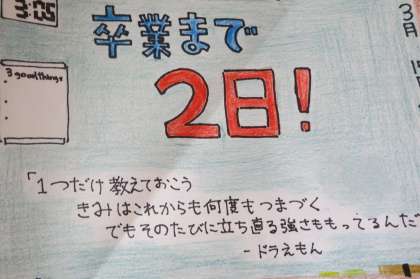 3:05
卒業まで
3月
2日!
3 good things
「1つだけ教えておこう
きみはこれからも何度もつまづく
でもそのたびに立ち直る強さももってるんだ
-ドラえもん